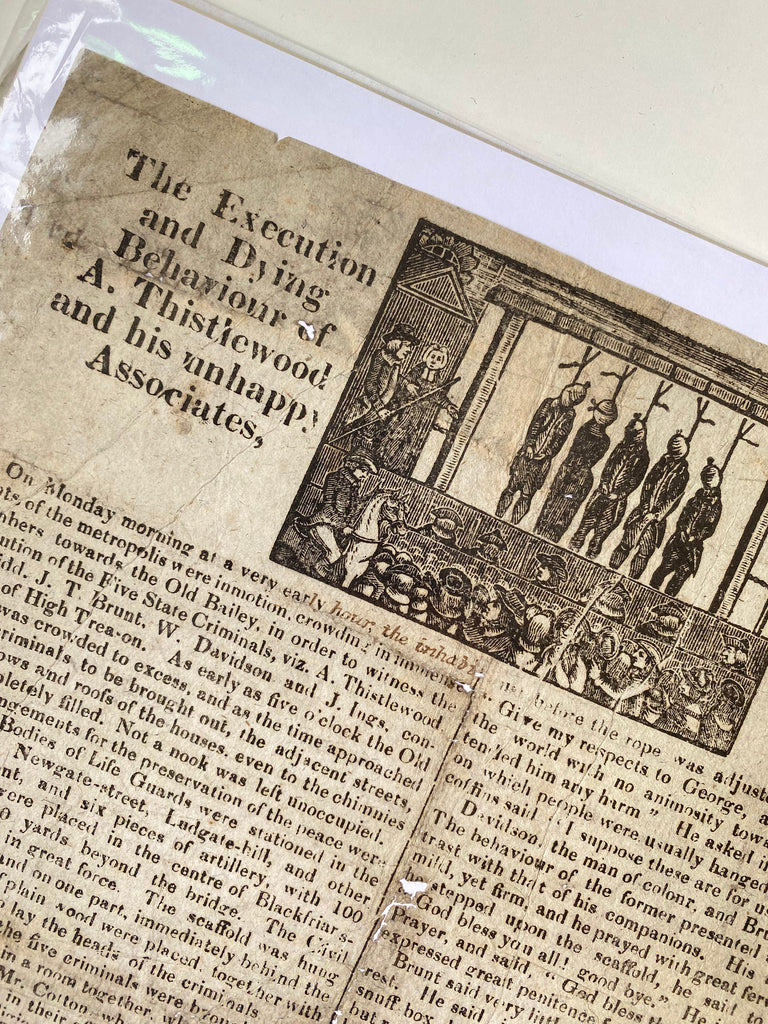 The Execution
and Dying
Behaviour of
A. Thistlewood
and his unhappy
Associates,
On Monday morning at a very early hour, the inhabi
ts of the metropolis were inmotion, crowding in immense
towards the Old Bailey, in order to witness the
ution of the Five State Criminals, viz. A. Thistlewood
idd, J. T. Brunt, W. Davidson and J. Ings, con-
of High Trea-on. As early as five o'clock the Old
was crowded to excess, and as the time approached
riminals to be brought out, the adjacent streets,
ows and roofs of the houses, even to the chimnies
pletely filled. Not a nook was left unoccupied.
ngements for the preservation of the peace were
Bodies of Life Guards were stationed in the
Newgate-street, Ludgate-hill, and other
nt, and six pieces of artillery, with 100
ere placed in the centre of Blackfriars-
0 yards beyond the bridge. The Civil
in great force. The scaffold was hung
and on one part, immediately behind the
plain wood were placed, together with
o lay the heads of the criminals
the five criminals were brough
in a room together, wh
Mr. Cotton, wh
in their
before the rope was adjuste
Give my respects to George, a
the world with no animosity towa
tended him any harm" He asked if
on which people were usually hanged
coffins said "I suppose these are for us
Davidson, the man of colour, and Bru
The behaviour of the former presented
trast with that of his companions. His
mild, yet firm, and he prayed with great ferv
he stepped upon the scaffold, he said to
God bless you all! good bye."
prayer, and said, "God bless th
expressed great penitence
rest. Brunt said very littl
snuff box
He said
but